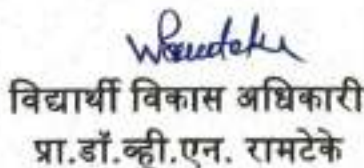 विद्यार्थी विकास अधिकारी
प्रा.डॉ.व्ही.एन. रामटेके